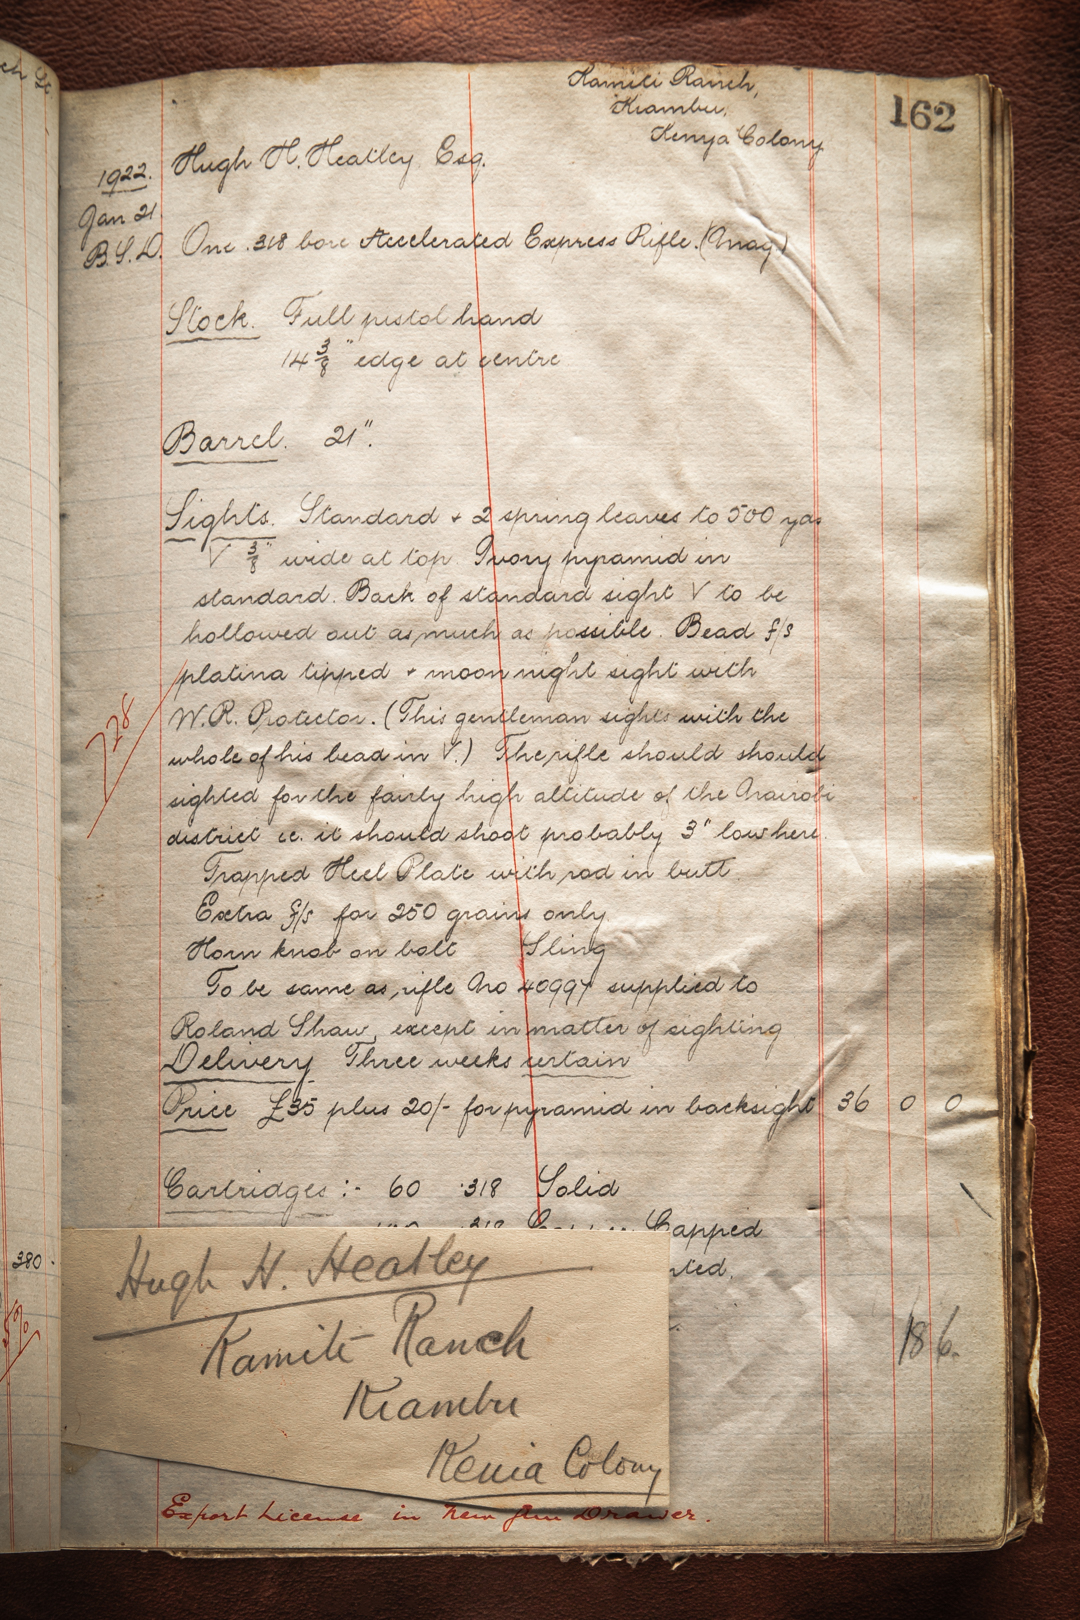 Kamiti Ranch,
Kiambu,
Kenya Colony
162
1922.
Hugh H. Heatley Esq.
Jan 21
B.S.D. One .318 bore Accelerated Express Rifle. (Mag)
Stock. Full pistol hand
14 3/8" edge at centre
Barrel. 21".
Sights. Standard + 2 spring leaves to 500 yds
V 3/8" wide at top Ivory pyramid in
standard. Back of standard sight V to be
hollowed out as much as possible. Bead f/s
platina tipped + moon night sight with
W.R. Protector. (This gentleman sights with the
whole of his bead in V.) The rifle should should
sighted for the fairly high altitude of the Nairobi
district ie. it should shoot probably 3" low here.
Trapped Heel Plate with rod in butt
Extra f/s for 250 grains only
Horn knob on bolt Sling
To be same as rifle No 40997 supplied to
Roland Shaw, except in matter of sighting
Delivery Three weeks certain
Price £35 plus 20/- for pyramid in backsight 36 0 0
Cartridges :- 60 .318 Solid
.318 Capped
18 6.
Hugh H. Heatley
Kamiti Ranch
Kiambu
Kenia Colony
Export License in New Gun Drawer.
380